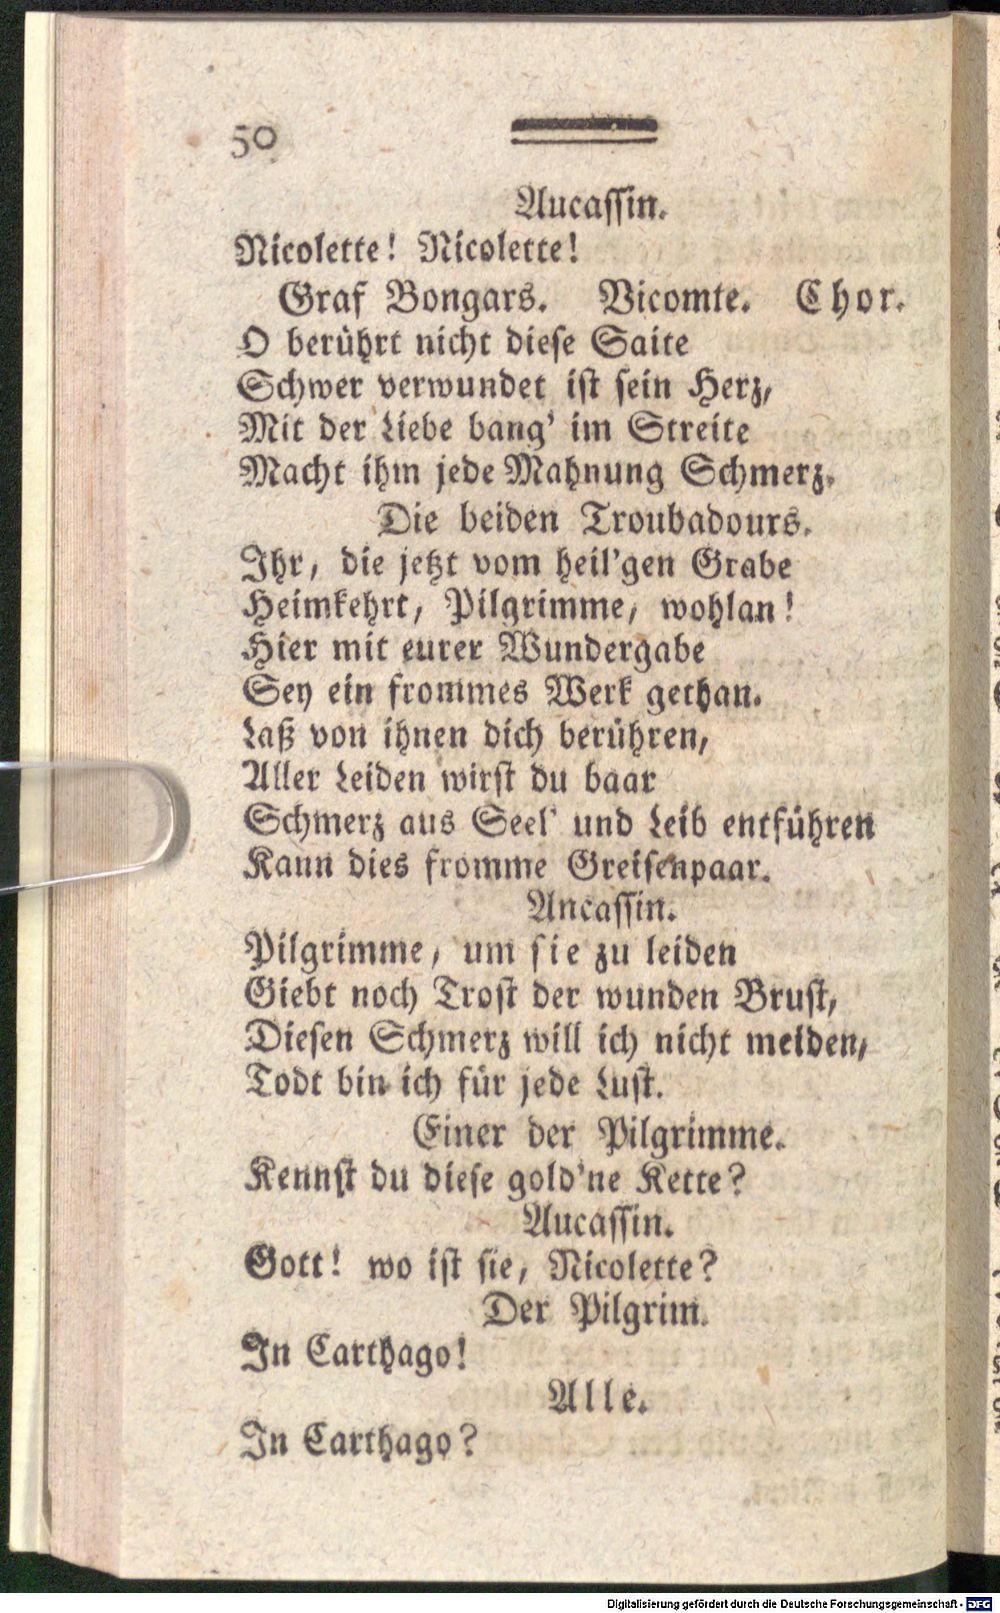 50
Aucassin.
Nicolette! Nicolette!
Graf Bongars. Vicomte. Chor.
O berührt nicht diese Saite
Schwer verwundet ist sein Herz,
Mit der Liebe bang' im Streite
Macht ihm jede Mahnung Schmerz.
Die beiden Troubadours.
Ihr, die jetzt vom heil'gen Grabe
Heimkehrt, Pilgrimme, wohlan!
Hier mit eurer Wundergabe
Sey ein frommes Werk gethan.
Laß von ihnen dich berühren,
Aller Leiden wirst du baar
Schmerz aus Seel' und Leib entführen
Kann dies fromme Greisenpaar.
Ancassin.
Pilgrimme, um sie zu leiden
Giebt noch Trost der wunden Brust,
Diesen Schmerz will ich nicht meiden,
Todt bin ich für jede Lust.
Einer der Pilgrimme.
Kennst du diese gold'ne Kette?
Aucassin.
Gott! wo ist sie, Nicolette?
Der Pilgrim.
In Carthago!
Alle.
In Carthago?
Digitalisierung gefördert durch die Deutsche Forschungsgemeinschaft - DFG